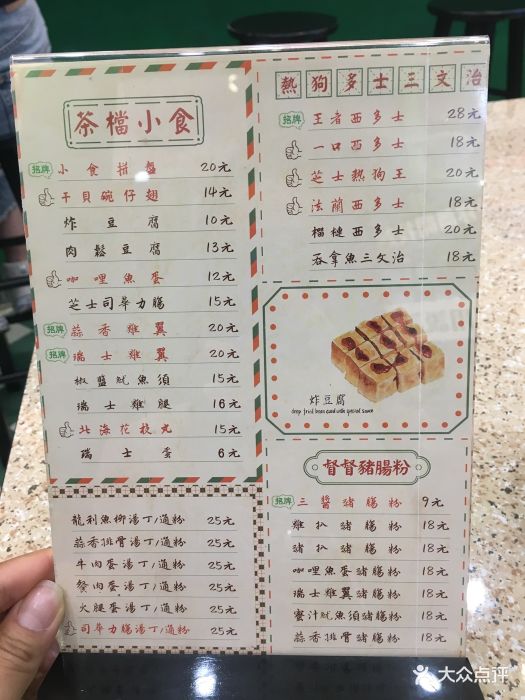 茶檔小食
招牌 小食拼盤 20元
干貝碗仔翅 14元
炸豆腐 10元
肉鬆豆腐 13元
咖哩魚蛋 12元
芝士司華力腸 15元
招牌 蒜香雞翼 20元
招牌 瑞士雞翼 20元
椒鹽魷魚須 15元
瑞士雞腿 16元
北海花枝丸 15元
瑞士蛋 6元
龍利魚柳湯丁/通粉 25元
蒜香排骨湯丁/通粉 25元
牛肉蛋湯丁/通粉 25元
餐肉蛋湯丁/通粉 25元
火腿蛋湯丁/通粉 25元
司華力腸湯丁/通粉 25元
熱狗多士三文治
招牌 王者西多士 28元
一口西多士 18元
芝士熱狗王 20元
法蘭西多士 18元
榴槤西多士 20元
吞拿魚三文治 18元
炸豆腐
deep fried bean curd with special sauce
督督豬腸粉
招牌 三醬豬腸粉 9元
雞扒豬腸粉 18元
豬扒豬腸粉 18元
咖哩魚蛋豬腸粉 18元
瑞士雞翼豬腸粉 18元
蜜汁魷魚須豬腸粉 18元
蒜香排骨豬腸粉 18元
大众点评